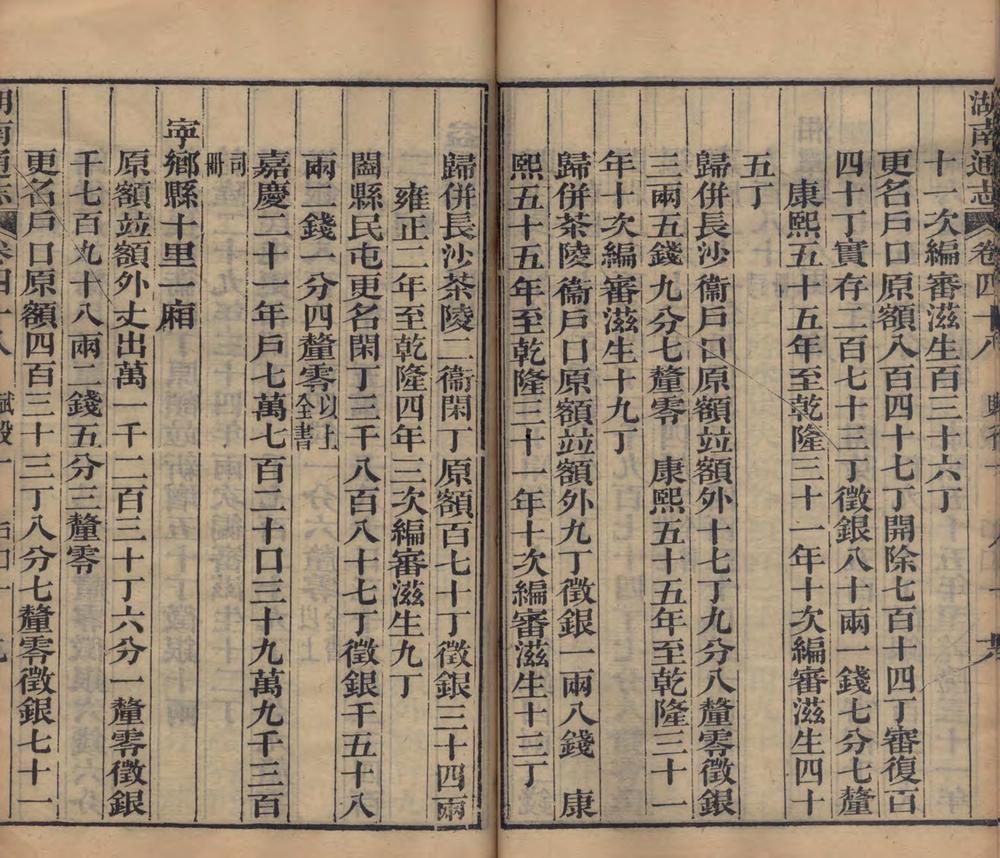 湖南通志 卷四十八
十一次編審滋生百三十六丁
更名戶口原額八百四十七丁開除七百十四丁審復百
四十丁實存二百七十三丁徵銀八十兩一錢七分七釐
康熙五十五年至乾隆三十一年十次編審滋生四十
五丁
歸併長沙衞戶口原額竝額外十七丁九分八釐零徵銀
三兩五錢九分七釐零 康熙五十五年至乾隆三十一
年十次編審滋生十九丁
歸併茶陵衞戶口原額竝額外九丁徵銀一兩八錢 康
熙五十五年至乾隆三十一年十次編審滋生十三丁
歸併長沙茶陵二衞閑丁原額百七十丁徵銀三十四兩
雍正二年至乾隆四年三次編審滋生九丁
闔縣民屯更名閑丁三千八百八十七丁徵銀千五十八
兩二錢一分四釐零以上全書
嘉慶二十一年戶七萬七百二十口三十九萬九千三百
司冊
寧鄉縣十里一廂
原額竝額外丈出萬一千二百三十丁六分一釐零徵銀
千七百九十八兩二錢五分三釐零
更名戶口原額四百三十三丁八分七釐零徵銀七十一
湖南通志 卷四十八 賦役一